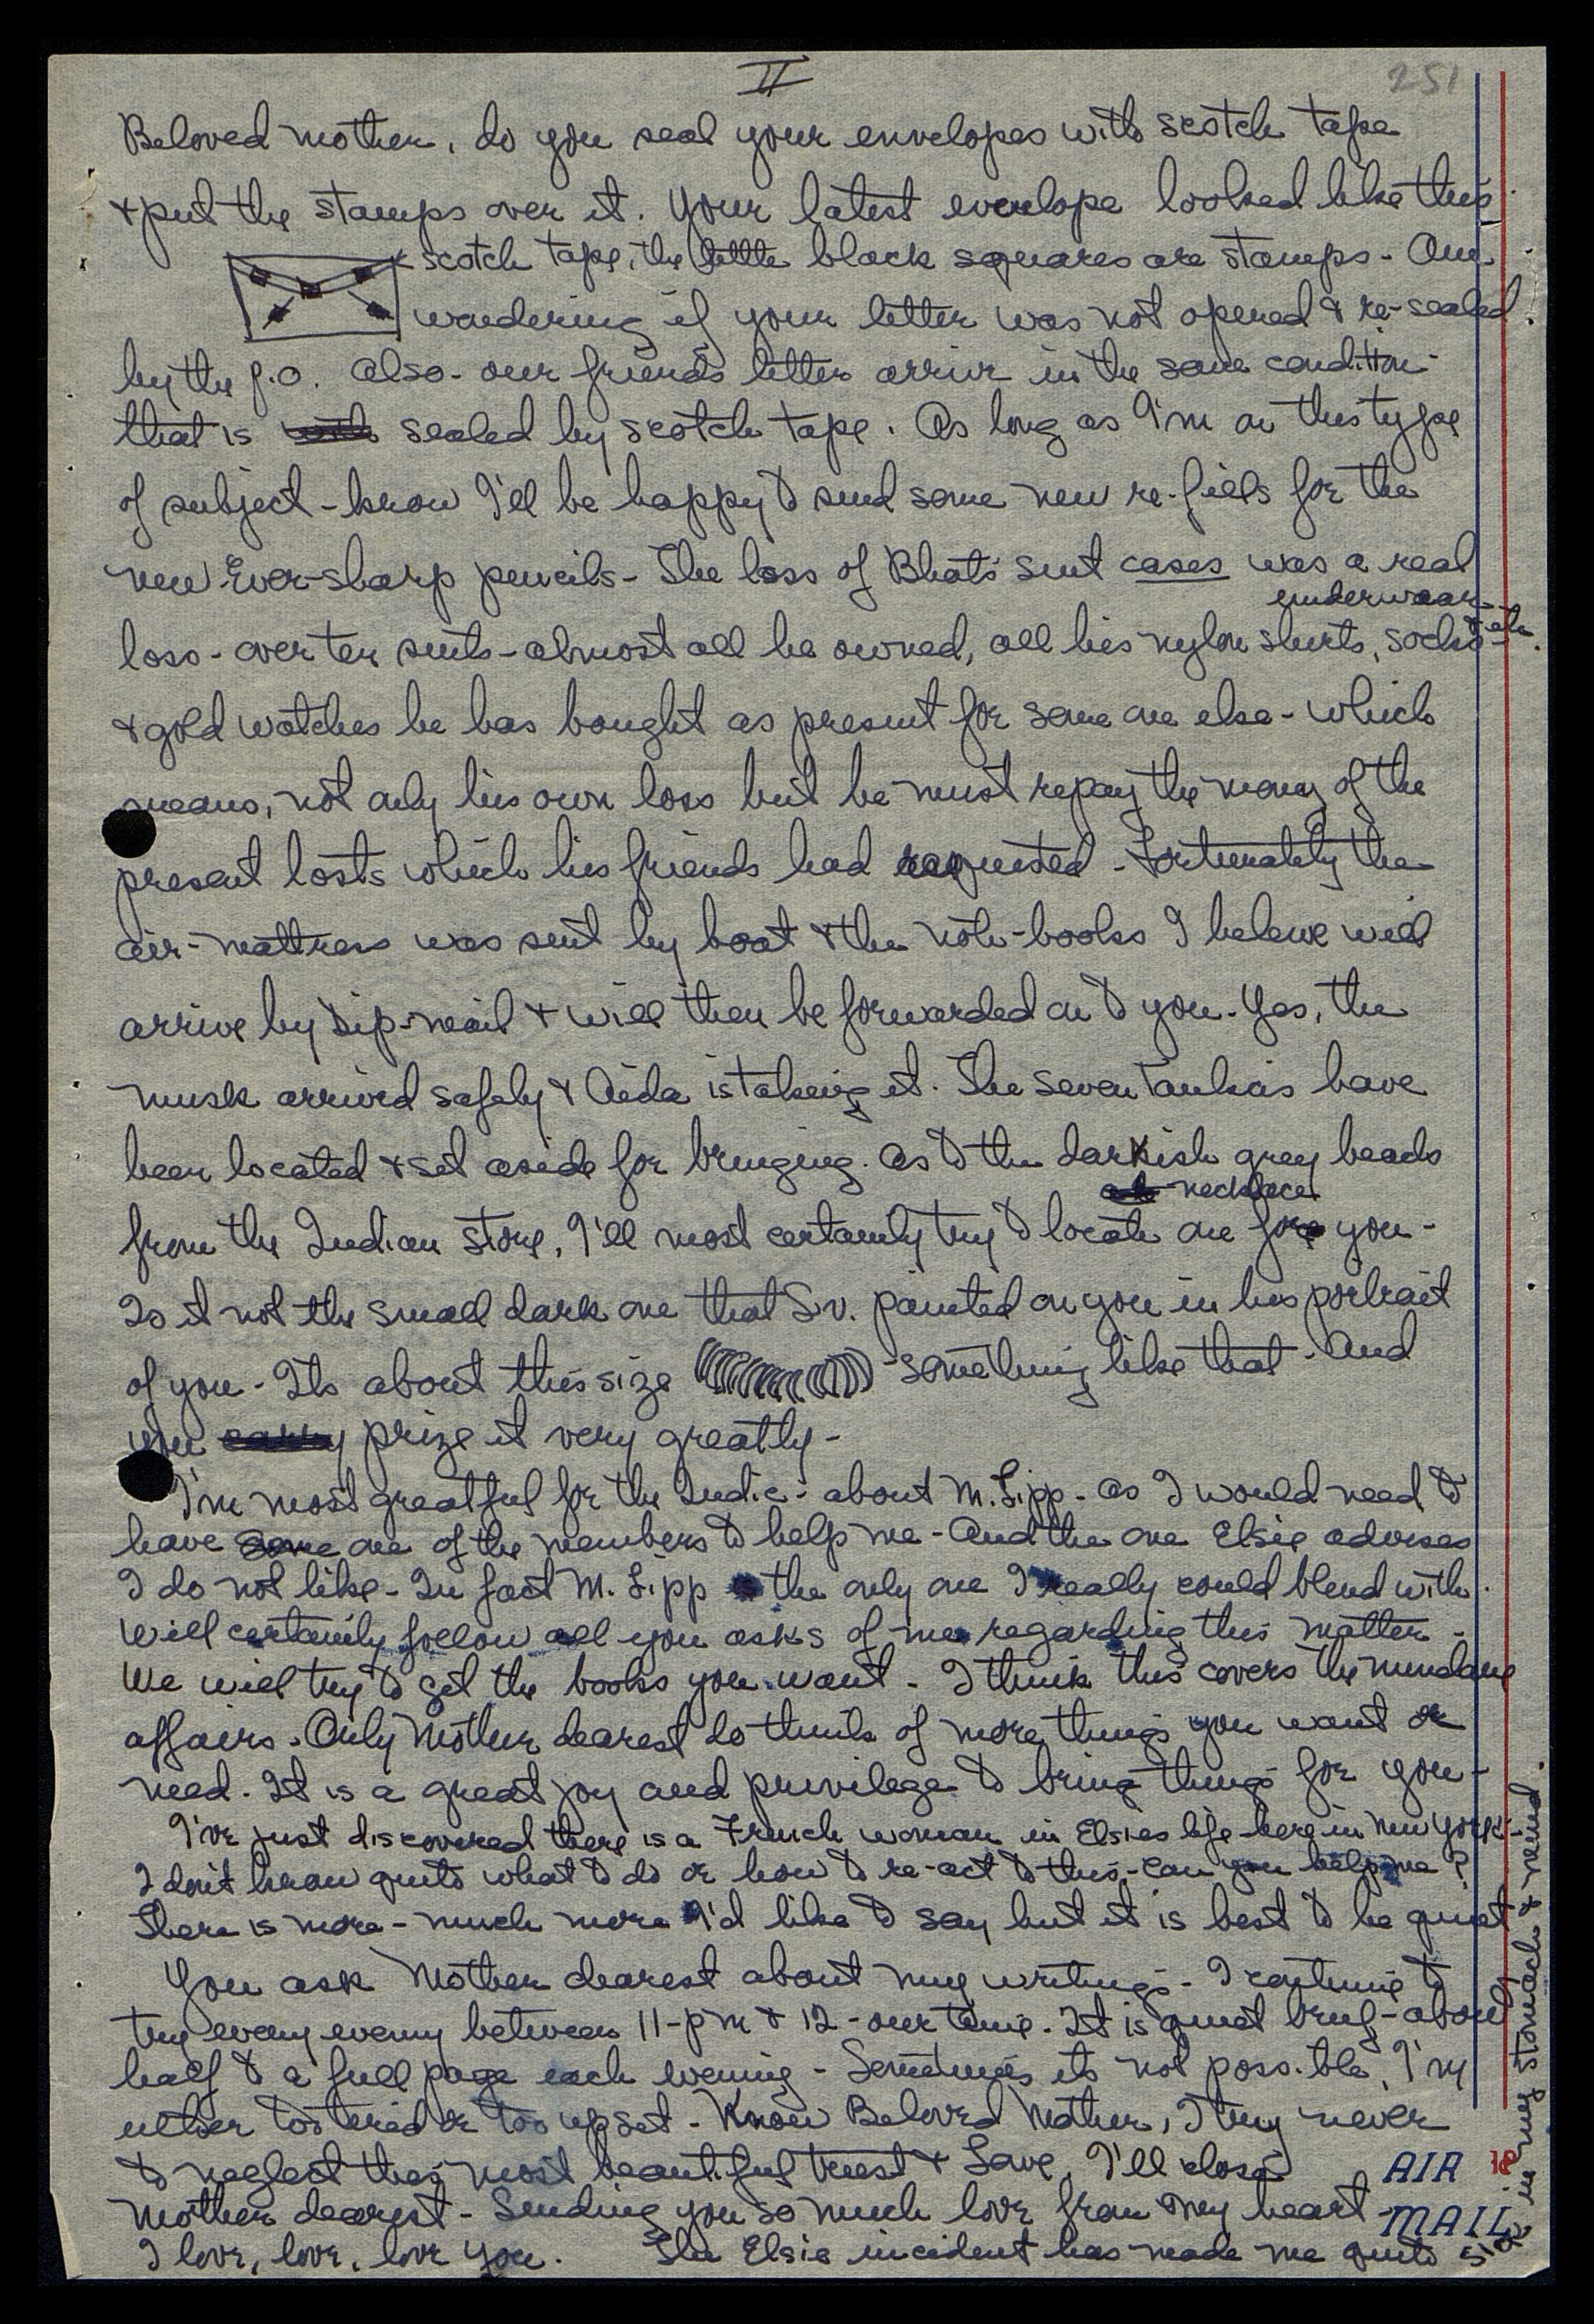 II
251
Beloved mother, do you seal your envelopes with scotch tape
& put the stamps over it. Your latest envelope looked like this
scotch tape, the little black squares are stamps - Am
wondering if your letter was not opened & re-sealed
by the p.o. Also - our friends letters arrive in the same condition -
that is sealed by scotch tape. As long as I'm on this type
of subject - know I'll be happy to send some new re-fills for the
new Ever-sharp pencils - The loss of Bhati's suit cases was a real
underwear
loss - over ten suits - almost all he owned, all his nylon shirts, socks - etc.
& gold watches he has bought as present for some one else - which
means, not only his own loss but he must repay the money of the
present losts which his friends had requested - Fortunately the
air-mattress was sent by boat & the note-books I beleive will
arrive by dip-mail & will then be forwarded on to you. Yes, the
musk arrived safely & Aida is taking it. The seven Tankas have
been located & set aside for bringing. As to the darkish grey beads
necklace
from the Indian store, I'll most certainly try to locate one for you -
Is it not the small dark one that Sv. painted on you in his portrait
of you - Its about this size something like that. And
you prize it very greatly -
I'm most greatful for the Indic - about M. Lipp - as I would need to
have some one of the members to help me - And the one Elsie advises
I do not like - In fact M. Lipp the only one I really could blend with.
Will certainly follow all you asks of me regarding this matter -
We will try to get the books you want - I think this covers the mundane
affairs. Only Mother dearest do think of more things you want or
need. It is a great joy and privilege to bring things for you -
I've just discovered there is a French woman in Elsies life here in New York -
I don't know quite what to do or how to re-act to this - Can you help me?
There is more - much more I'd like to say but it is best to be quiet
You ask Mother dearest about my writings - I continue to
try every evening between 11-pm & 12 - our time. It is quiet brief - about
half to a full page each evening - Sometimes its not possible, I'm
either too tired or too upset - Know Beloved Mother, I try never
to neglect this most beautiful trust & Love. I'll close
Mother dearest - Sending you so much love from my heart -
I love, love, love you. The Elsie incident has made me quite sick
in my stomach & mind.
AIR
MAIL